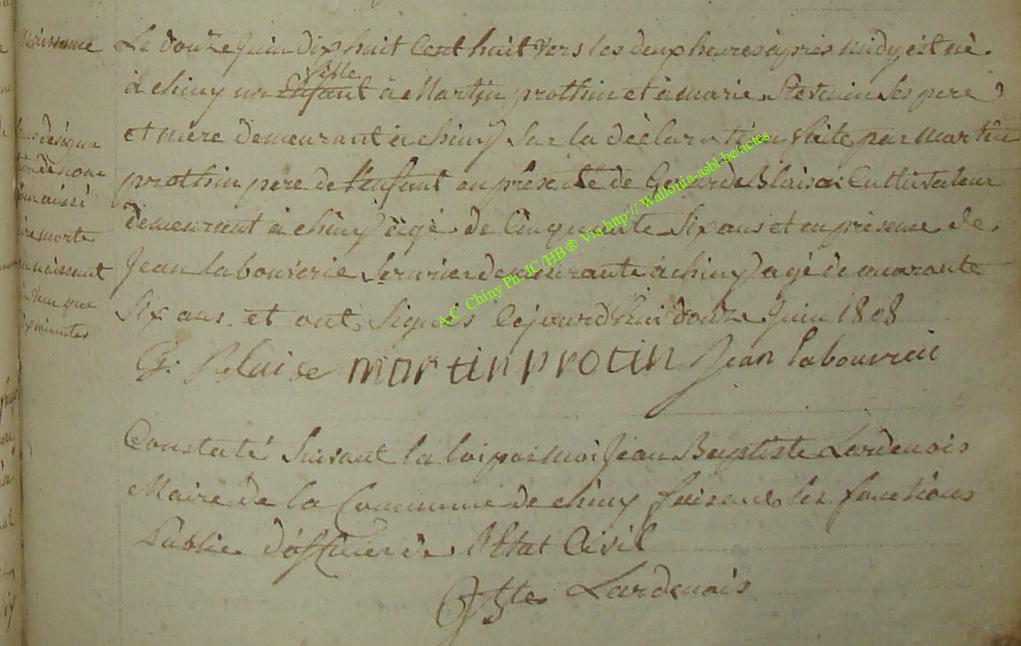 naissance
Le douze juin dix huit Cent huit vers les deux heures après midy est né
fille
à chiny un Enfant à Martin prothin et à marie Stevenin Ses pere
et mère demeurant à chiny Sur la déclaration faite par Martin
prothin pere de l'enfant en présence de Gerard Blaise Cultivateur
demeurant à chiny âgé de Cinquante Six ans et en présence de
Jean labouverie demeurante à chiny agé de quarante
Six ans et ont Signés Cejourd'hui douze Juin 1808
G. Blaise martin protin Jean labouverie
Constaté Suivant la loi par moi Jean Baptiste Lardenois
Maire de la Commune de chiny faisant les fonctions
Public d'officier de l'Etat Civil
Lardenois
morte
naissant
que
minutes
A.C. Chiny Ph JC /HB ® Via http:// Wallonia-asbl.be/actes